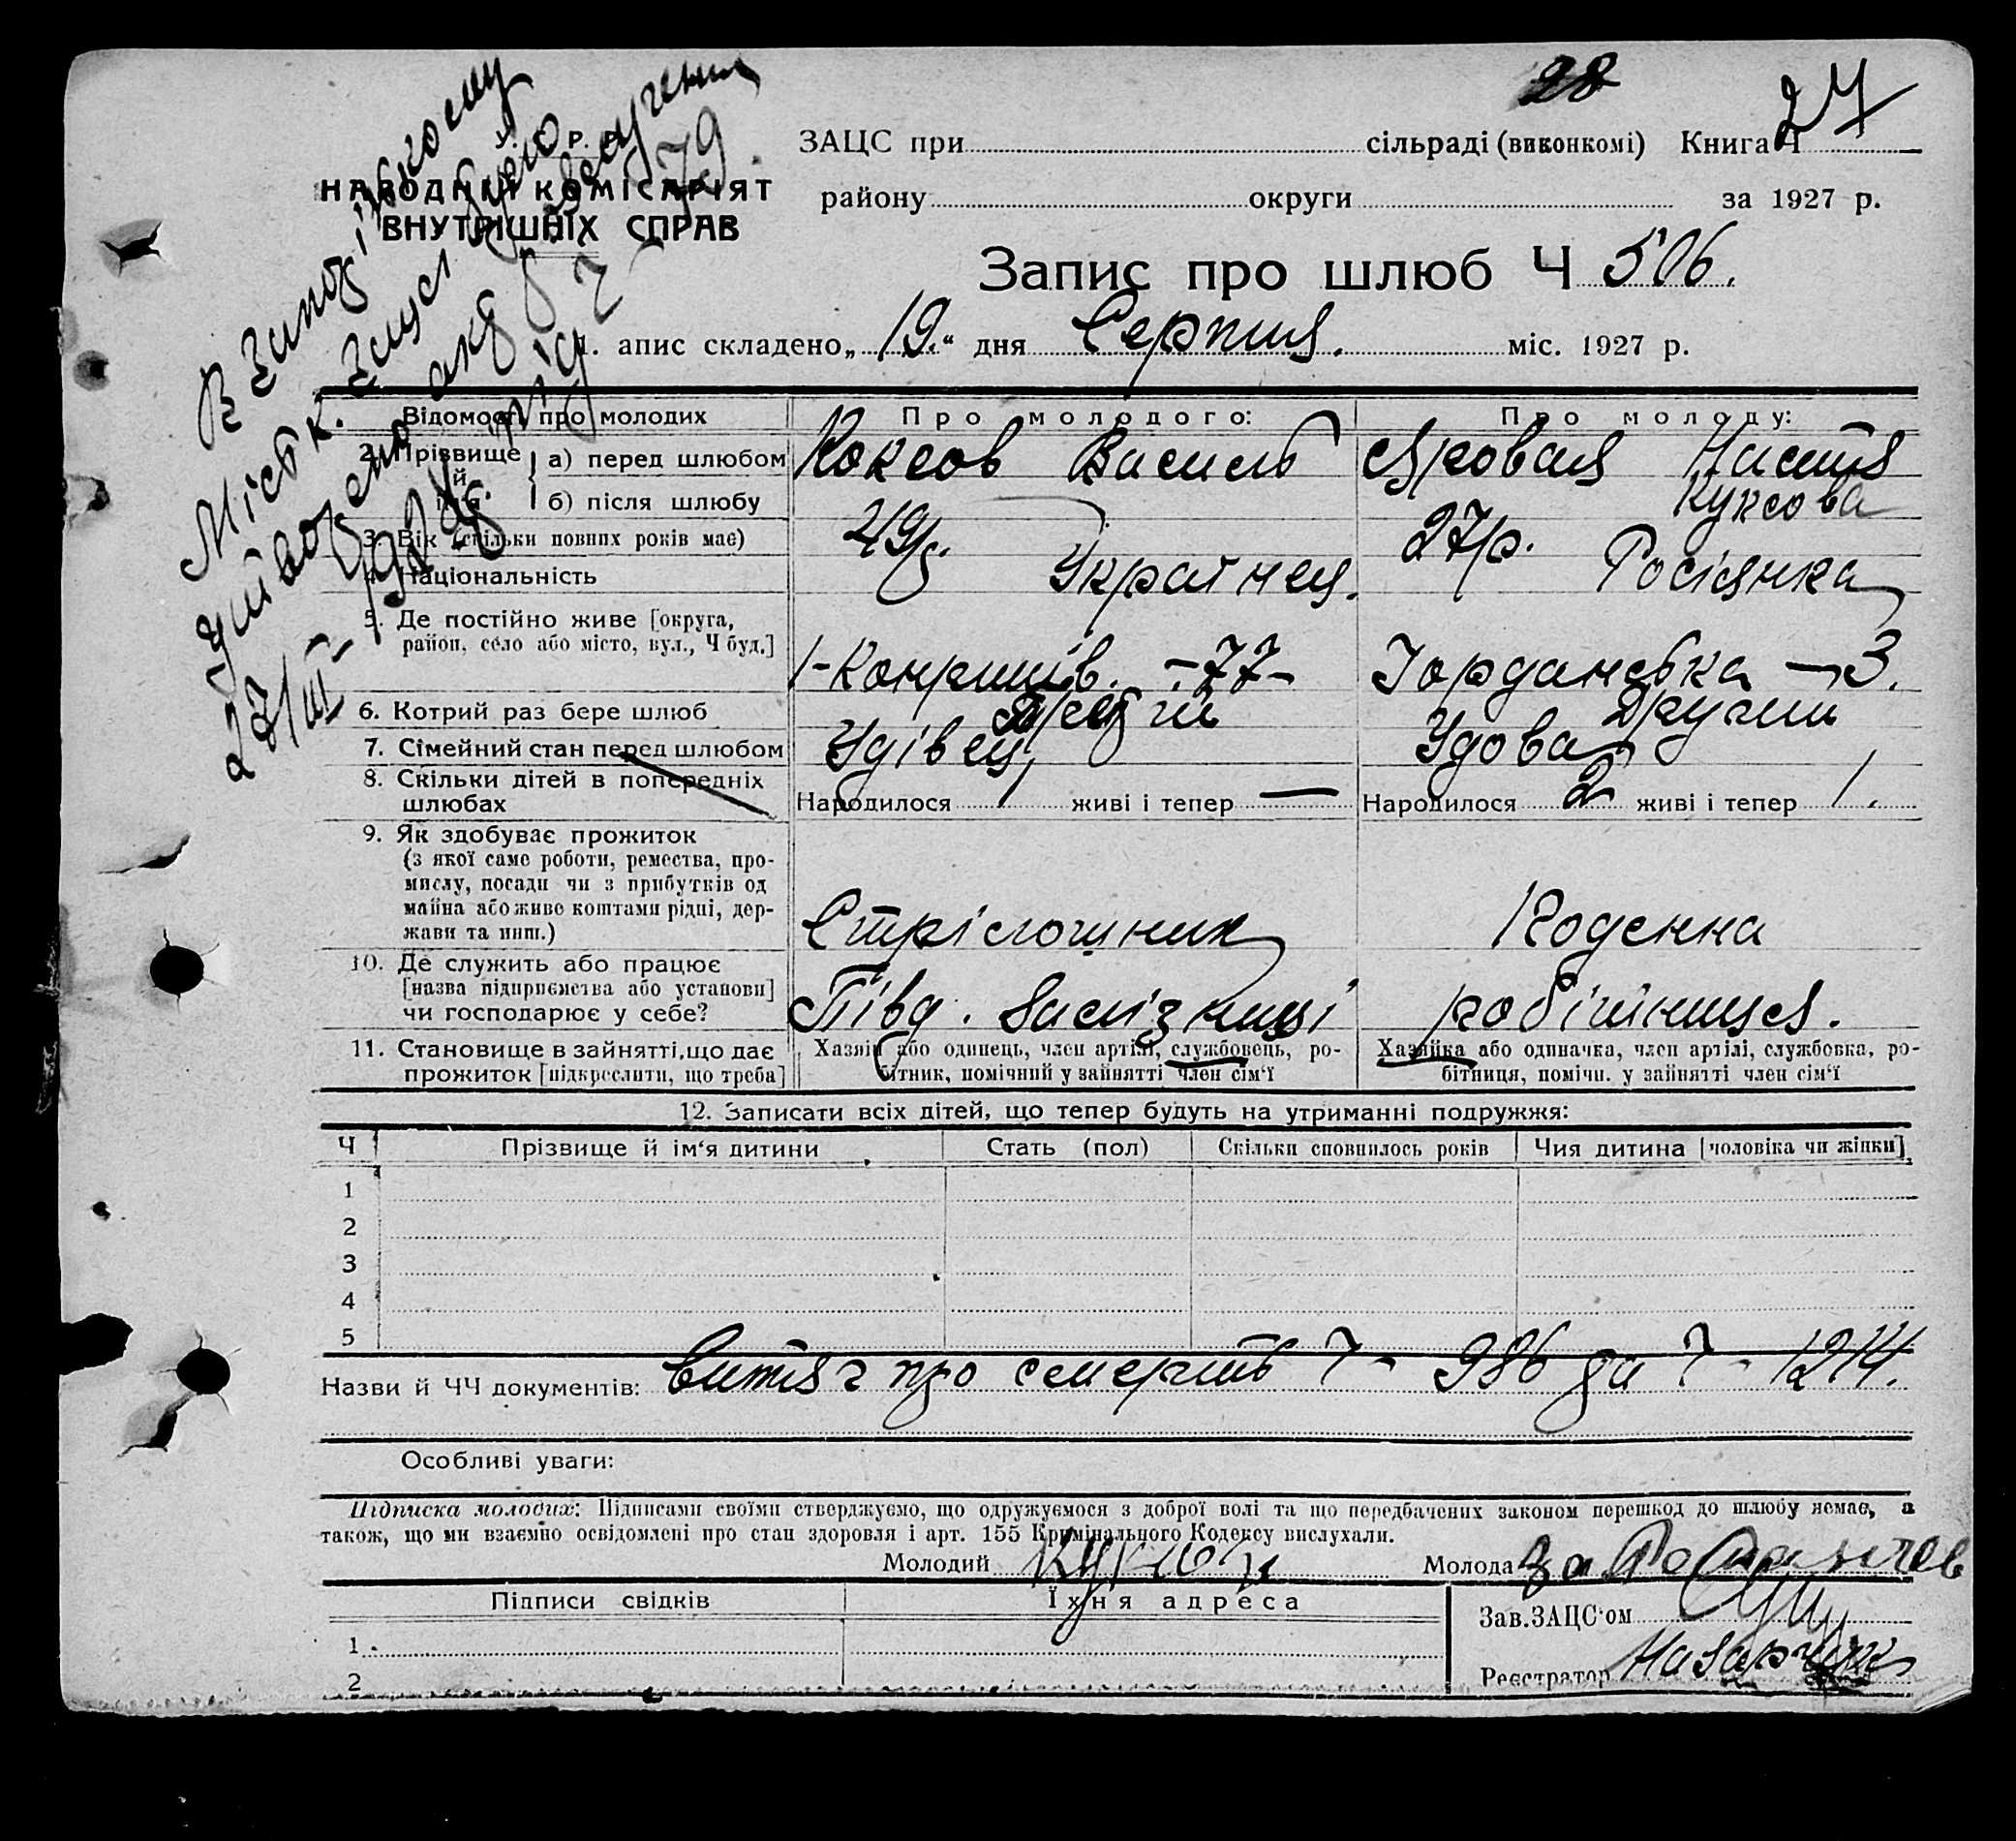 28
27
ЗАЦС при сільраді (виконкомі) Книга Ч
НАРОДНИЙ КОМІСАРІЯТ
району округи за 1927 р.
ВНУТРІШНІХ СПРАВ
Запис про шлюб Ч 506.
апис складено „19.“ дня Серпня. міс. 1927 р.
В Запоріжському
Міськ. Загсі
27/III-
Відомості про молодих Про молодого: Про молоду:
2. Прізвище й ім'я а) перед шлюбом Коксов Василь Яровая Настя
б) після шлюбу Куксова
3. Вік (скільки повних років має) 49р. 27р.
4. Національність Українец. Росіянка
5. Де постійно живе [округа, район, село або місто, вул., Ч буд.] -77- Іорданська - 3.
6. Котрий раз бере шлюб Другий
7. Сімейний стан перед шлюбом Удівец, Удова
8. Скільки дітей в попередніх шлюбах Народилося 1 живі і тепер — Народилося 2 живі і тепер 1.
9. Як здобуває прожиток
(з якої само роботи, ремества, про-
мислу, посади чи з прибутків од
майна або живе коштами рідні, дер-
жави та инш.) Стрілошник Поденна
10. Де служить або працює
[назва підприємства або установи]
чи господарює у себе? Півд. Залізниці робітниця.
11. Становище в зайнятті, що дає
прожиток [підкреслити, що треба]
Хазяїн або одинець, член артілі, службовець, ро-
бітник, помічний у зайнятті член сім'ї
Хазяйка або одиначка, член артілі, службовка, ро-
бітниця, помічн. у зайнятті член сім'ї
12. Записати всіх дітей, що тепер будуть на утриманні подружжя:
Ч Прізвище й ім'я дитини Стать (пол) Скільки сповнилось років Чия дитина [чоловіка чи жінки]
1
2
3
4
5
Назви й ЧЧ документів: Витяг про смерть Ч - 986 та Ч - 1214.
Особливі уваги:
Підписка молодих: Підписами своїми стверджуємо, що одружуємося з доброї волі та що передбачених законом перешкод до шлюбу немає, а
також, що ми взаємно освідомлені про стан здоровля і арт. 155 Крімінального Кодексу вислухали.
Молодий Молода за
Підписи свідків Їхня адреса Зав. ЗАЦС'ом
1
2 Реєстратор Назарчук